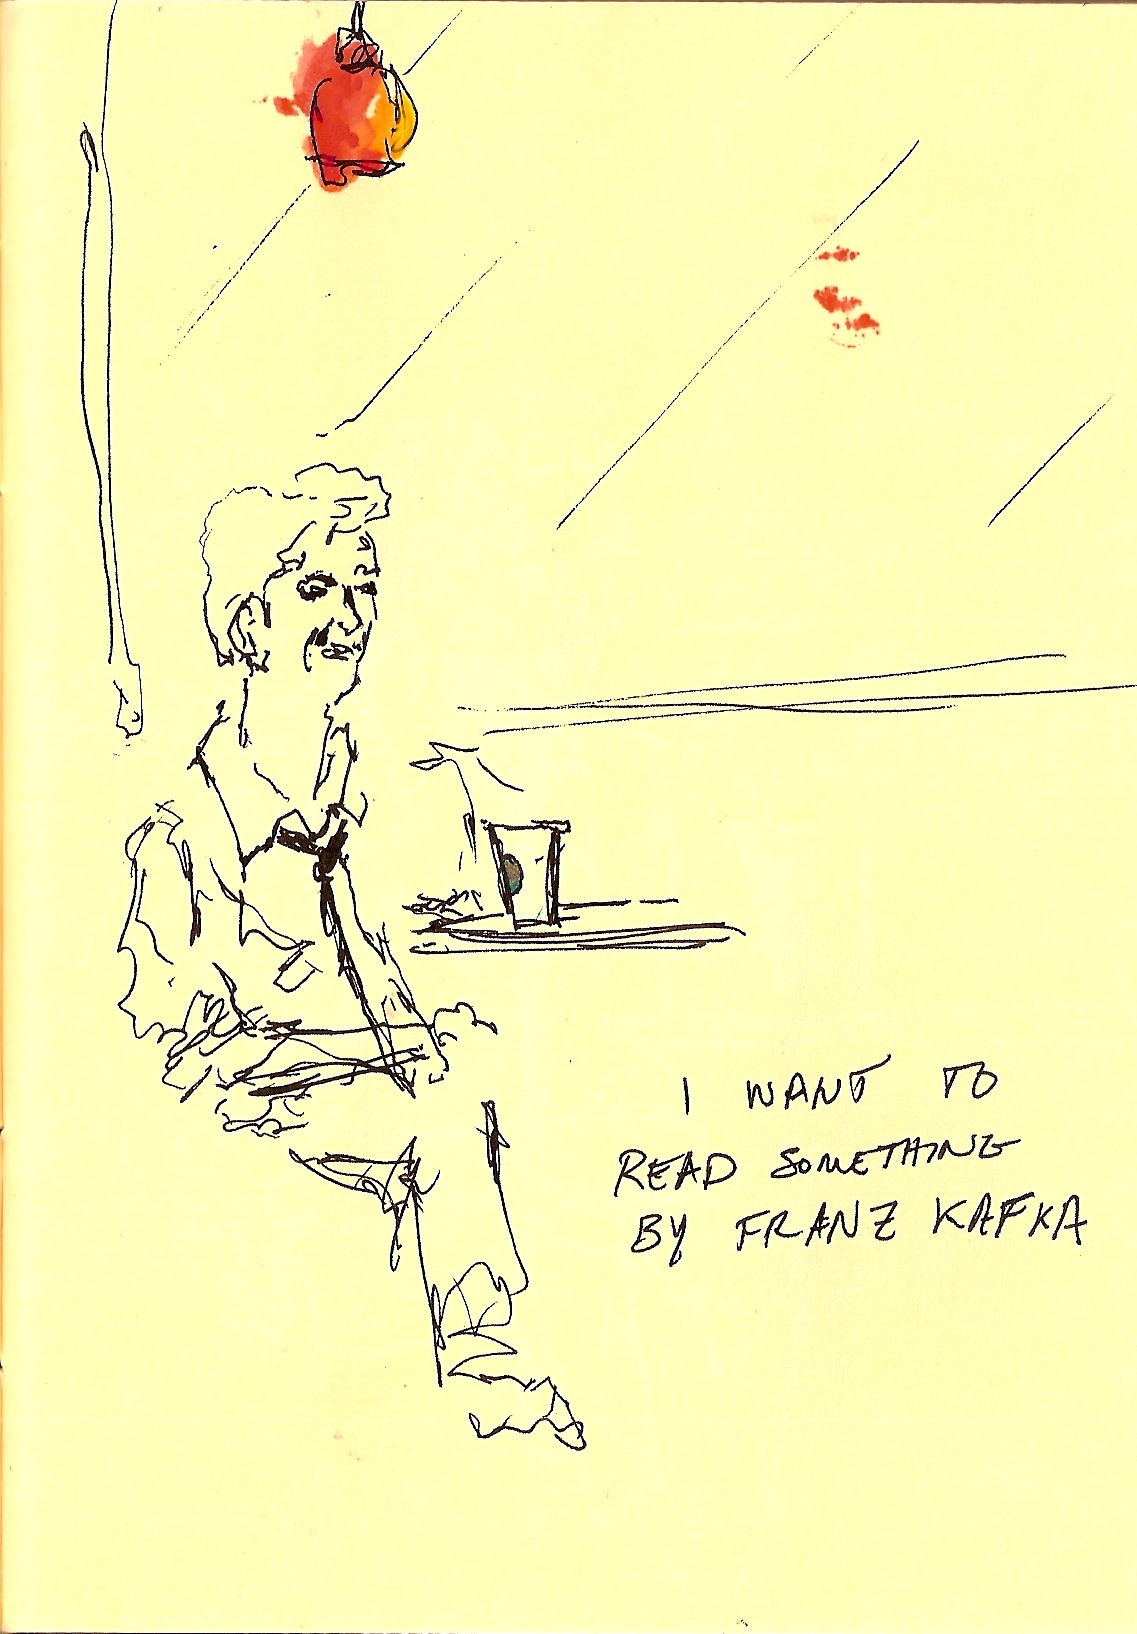 I WANT TO
READ SOMETHING
BY FRANZ KAFKA